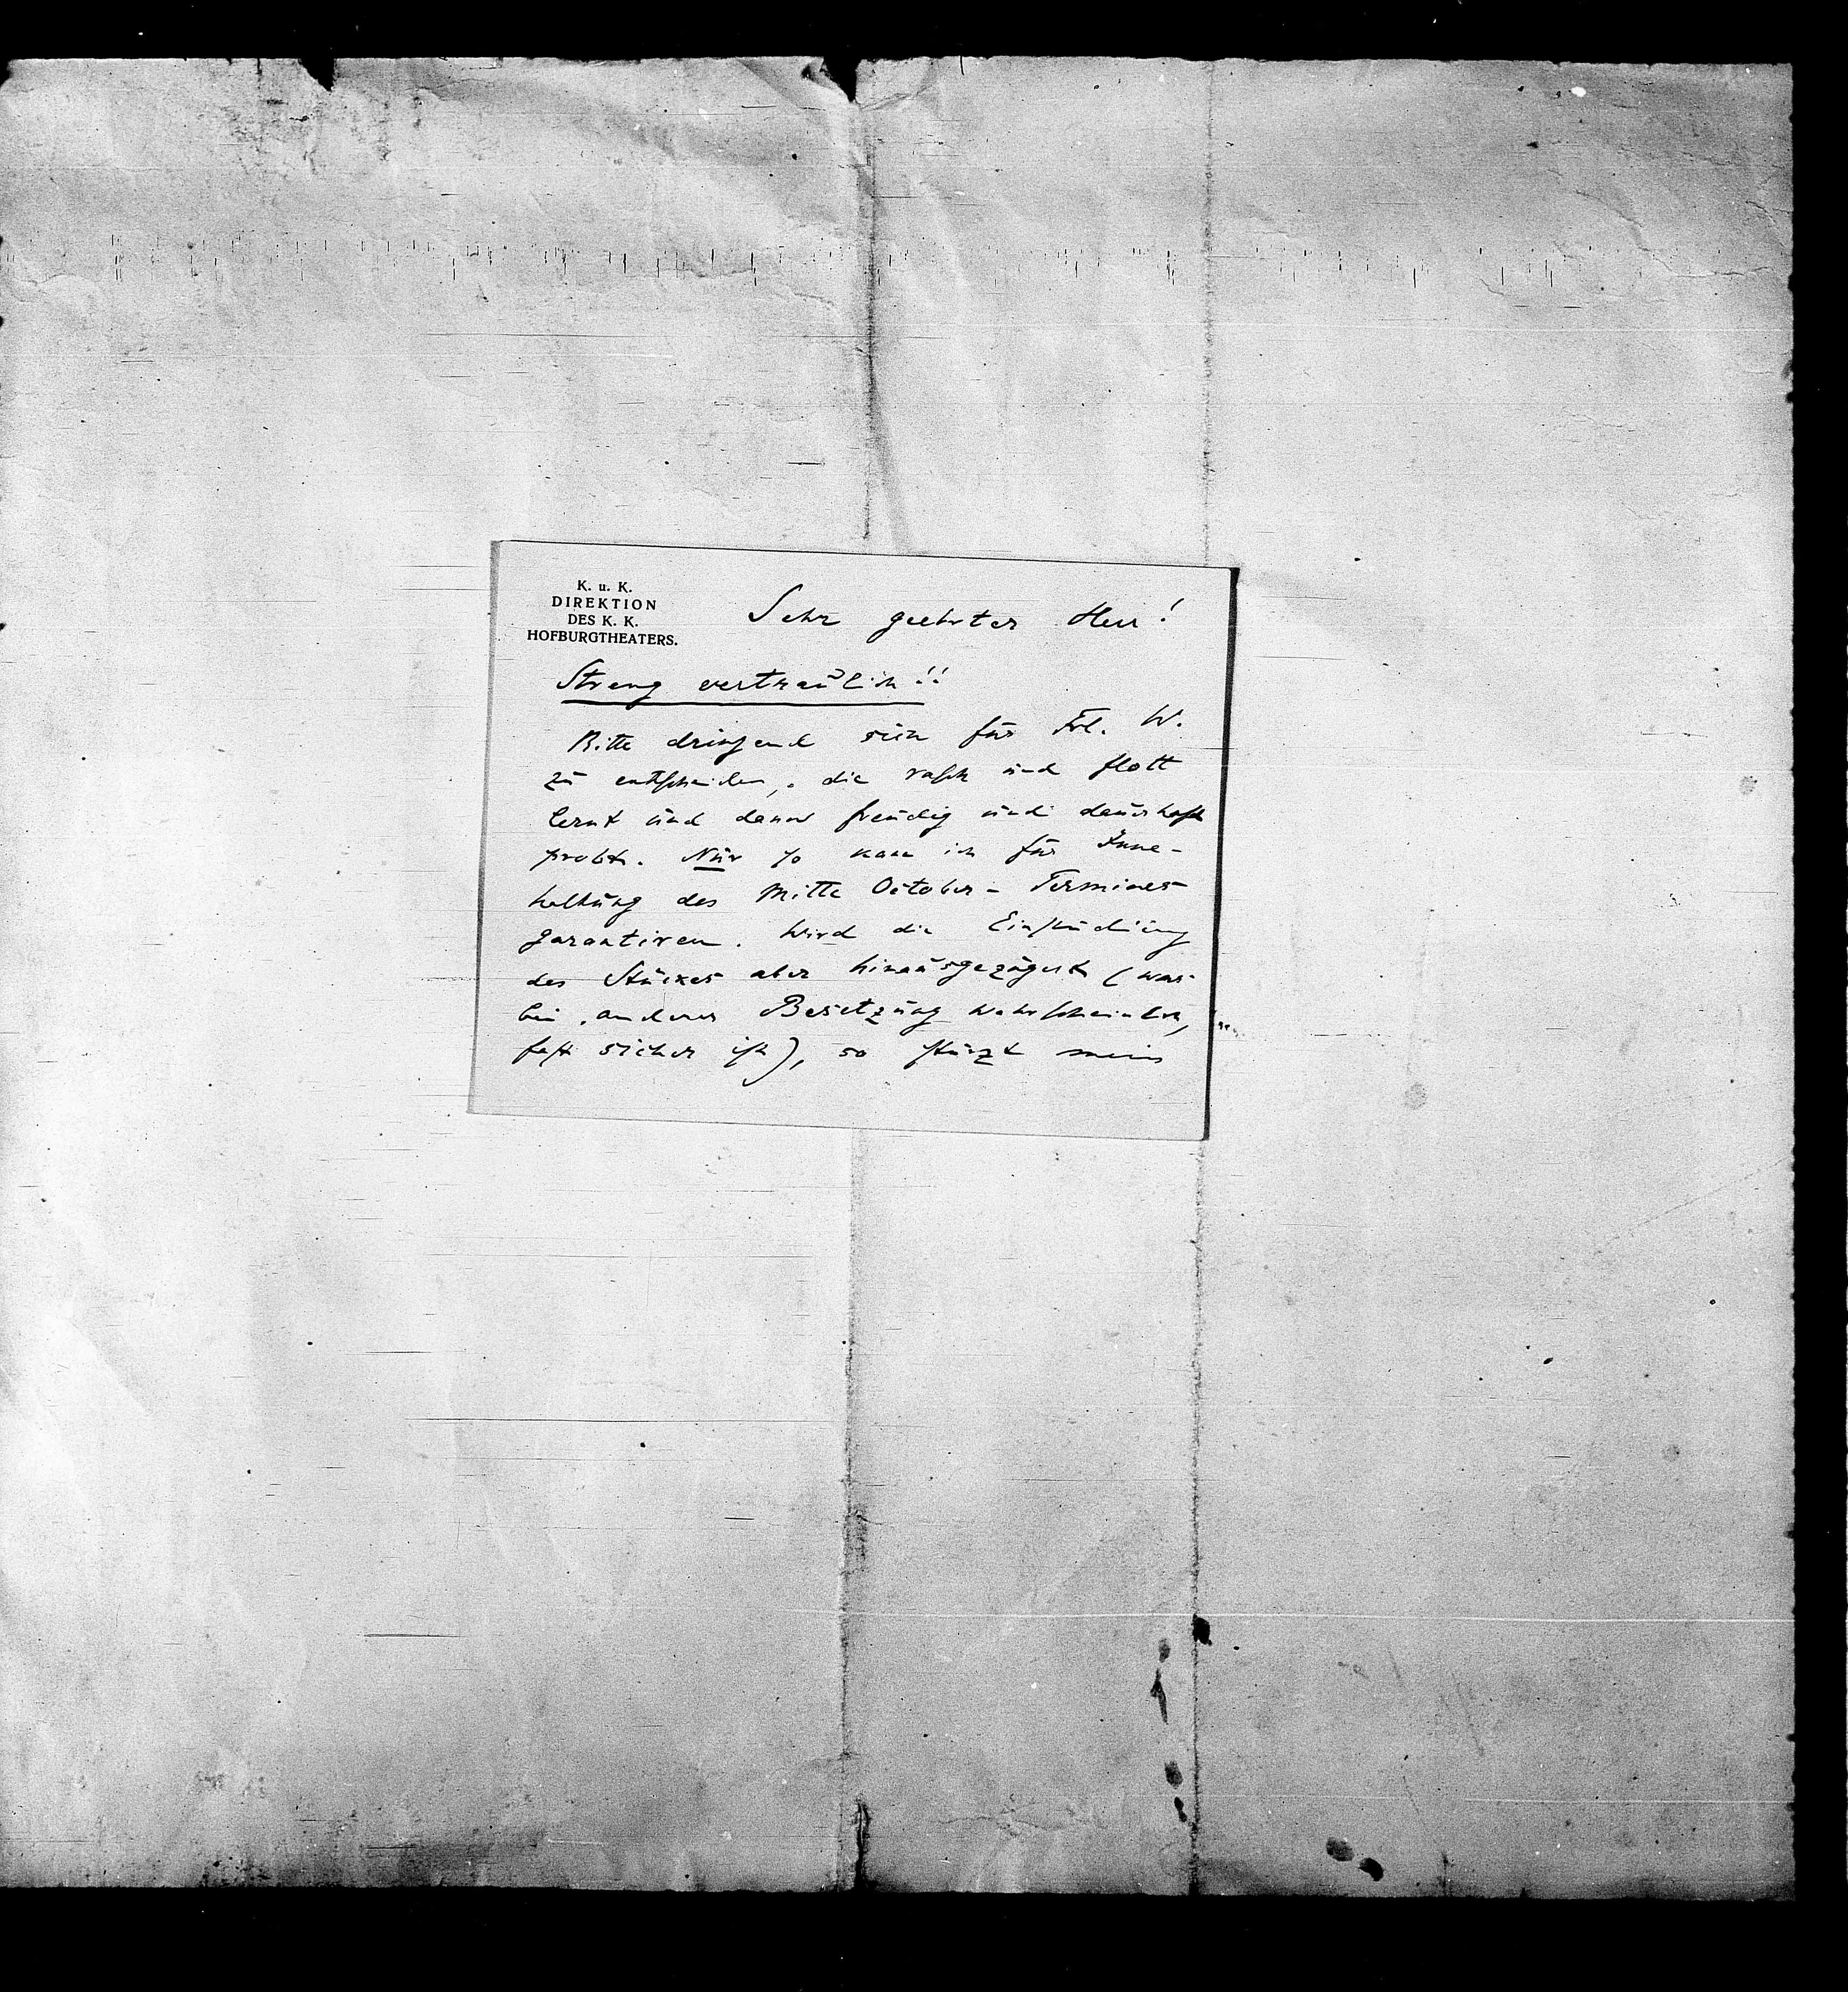 K. u. K.
DIREKTION
DES K. K.
HOFBURGTHEATERS.
Sehr geehrter Herr!
Streng vertraulich!!
Bitte dringend sich für Frl. W.
zu entscheiden, die rasch und flott
lernt und dann freudig und dauerhaft
probt. Nur so kann ich für Inne-
haltung des Mitte October-Termines
garantiren. Wird die Einstudirung
des Stückes aber hinausgezögert (was
bei anderer Besetzung wahrscheinlich,
fast sicher ist), so stürzt mein